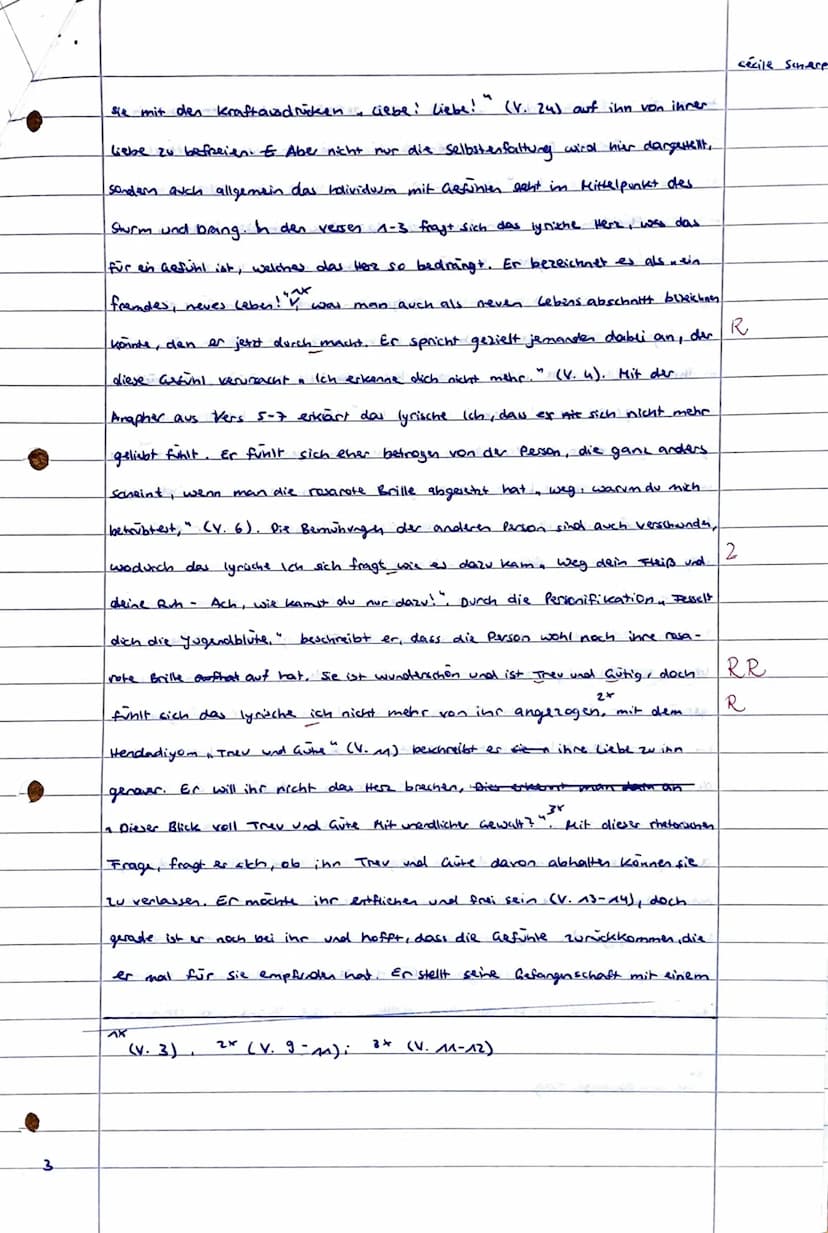 Cécile Scherp
sie mit den Kraftausdrücken „Liebe! Liebe!" (V. 24) auf ihn von ihrer
Liebe zu befreien. Aber nicht nur die Selbstenfaltung wird hier dargestellt,
sondern auch allgemein das Individuum mit Gefühlen steht im Mittelpunkt des
Sturm und Drang. In den Versen 1-3 fragt sich das lyrische Herz, was das
für ein Gefühl ist, welches das Herz so bedrängt. Er bezeichnet es als „ein
fremdes, neues Leben!" 1*, was man auch als neuen Lebensabschnitt bezeichnen
könnte, den er jetzt durch macht. Er spricht gezielt jemanden dabei an, der R
diese Gefühl verursacht „Ich erkenne dich nicht mehr." (V. 4). Mit der
Anapher aus Vers 5-7 erklärt das lyrische Ich, dass er sich nicht mehr
geliebt fühlt. Er fühlt sich eher betrogen von der Person, die ganz anders
scheint, wenn man die rosarote Brille abgesetzt hat „Weg, warum du mich
betrübtest," (V. 6). Die Bemühungen der anderen Person sind auch verschwunden,
wodurch das lyrische Ich sich fragt wie es dazu kam „Weg dein Fleiß und 2
deine Ruh - Ach, wie kamst du nur dazu!". Durch die Personifikation „Fesselt
dich die Jugendblüte," beschreibt er, dass die Person wohl noch ihre rosa-
rote Brille auf hat. Sie ist wunderschön und ist Treu und Gütig, doch RR
fühlt sich das lyrische ich nicht mehr von ihr angezogen, 2* mit dem R
Hendadiyom „Treu und Güte" (V. 11) beschreibt er ihre Liebe zu ihn
genauer. Er will ihr nicht das Herz brechen, Dies erkennt man dann an
„Dieser Blick voll Treu und Güte Mit unendlicher Gewalt?" 3*. Mit dieser rhetorischen
Frage, fragt er sich, ob ihn Treu und Güte davon abhalten können sie
zu verlassen. Er möchte ihr entfliehen und frei sein (V. 13-14), doch
gerade ist er noch bei ihr und hofft, dass die Gefühle zurückkommen, die
er mal für sie empfunden hat. Er stellt seine Gefangenschaft mit einem
1* (V. 3), 2* (V. 9-11); 3* (V. 11-12)
3